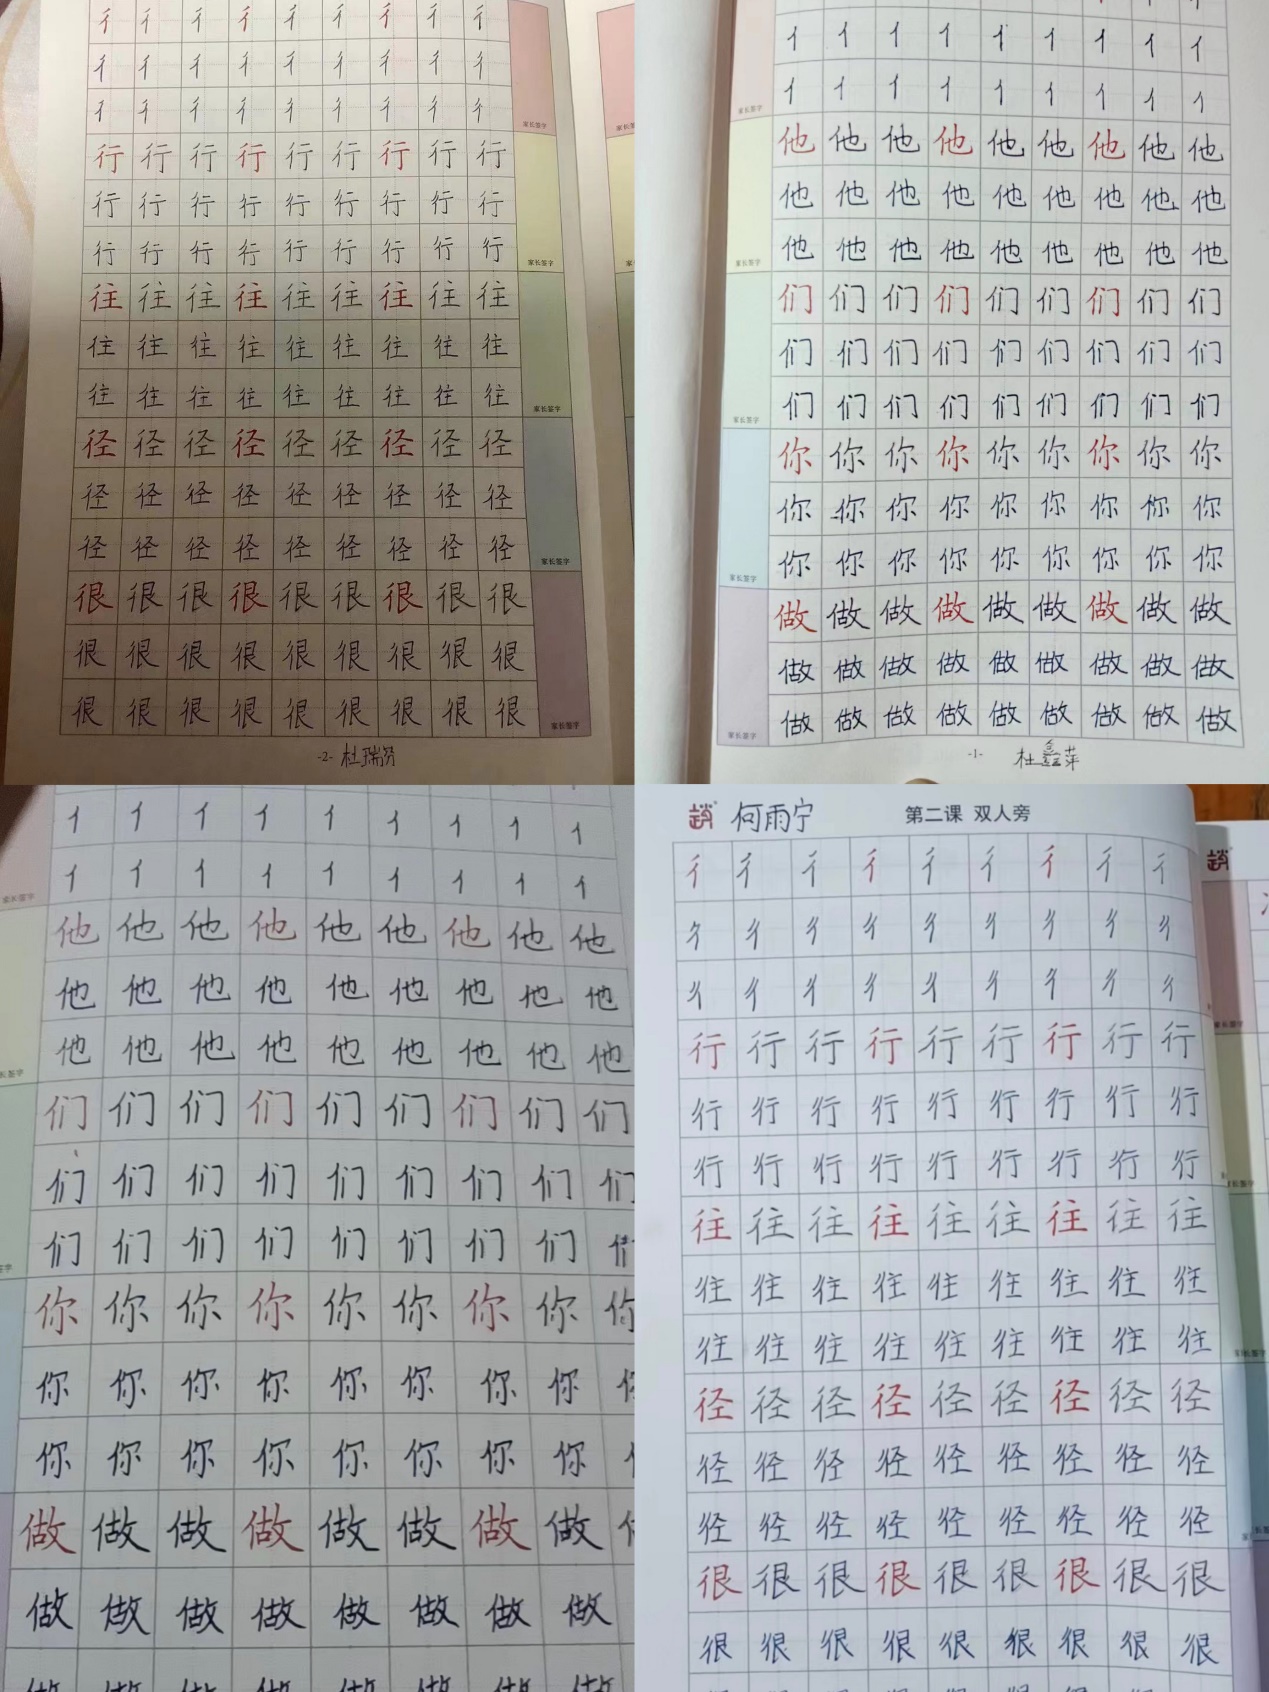 彳 彳 彳 彳 彳 彳 彳 彳 彳
彳 彳 彳 彳 彳 彳 彳 彳 彳
彳 彳 彳 彳 彳 彳 彳 彳 彳
家长签字
行 行 行 行 行 行 行 行 行
行 行 行 行 行 行 行 行 行
行 行 行 行 行 行 行 行 行
家长签字
往 往 往 往 往 往 往 往 往
往 往 往 往 往 往 往 往 往
往 往 往 往 往 往 往 往 往
家长签字
径 径 径 径 径 径 径 径 径
径 径 径 径 径 径 径 径 径
径 径 径 径 径 径 径 径 径
家长签字
很 很 很 很 很 很 很 很 很
很 很 很 很 很 很 很 很 很
很 很 很 很 很 很 很 很 很
家长签字
-2- 杜瑞
亻 亻 亻 亻 亻 亻 亻 亻 亻
亻 亻 亻 亻 亻 亻 亻 亻 亻
家长签字
他 他 他 他 他 他 他 他 他
他 他 他 他 他 他 他 他 他
他 他 他 他 他 他 他 他 他
家长签字
们 们 们 们 们 们 们 们 们
们 们 们 们 们 们 们 们 们
们 们 们 们 们 们 们 们 们
家长签字
你 你 你 你 你 你 你 你 你
你 你 你 你 你 你 你 你 你
你 你 你 你 你 你 你 你 你
家长签字
做 做 做 做 做 做 做 做 做
做 做 做 做 做 做 做 做 做
做 做 做 做 做 做 做 做 做
家长签字
-1- 杜鑫萍
亻 亻 亻 亻 亻 亻 亻 亻 亻
亻 亻 亻 亻 亻 亻 亻 亻 亻
家长签字
他 他 他 他 他 他 他 他 他
他 他 他 他 他 他 他 他 他
他 他 他 他 他 他 他 他 他
长签字
们 们 们 们 们 们 们 们 们
们 们 们 们 们 们 们 们 们
们 们 们 们 们 们 们 们
签字
你 你 你 你 你 你 你 你 你
你 你 你 你 你 你 你 你
你 你 你 你 你 你 你 你
做 做 做 做 做 做 做 做
做 做 做 做 做 做 做 做
做 做 做 做 做 做 做 做
何雨宁 第二课 双人旁
彳 彳 彳 彳 彳 彳 彳 彳 彳
彳 彳 彳 彳 彳 彳 彳 彳 彳
彳 彳 彳 彳 彳 彳 彳 彳 彳
家长签字
行 行 行 行 行 行 行 行 行
行 行 行 行 行 行 行 行 行
行 行 行 行 行 行 行 行 行
家长签字
往 往 往 往 往 往 往 往 往
往 往 往 往 往 往 往 往 往
往 往 往 往 往 往 往 往 往
径 径 径 径 径 径 径 径 径
径 径 径 径 径 径 径 径 径
径 径 径 径 径 径 径 径 径
很 很 很 很 很 很 很 很 很
很 很 很 很 很 很 很 很 很